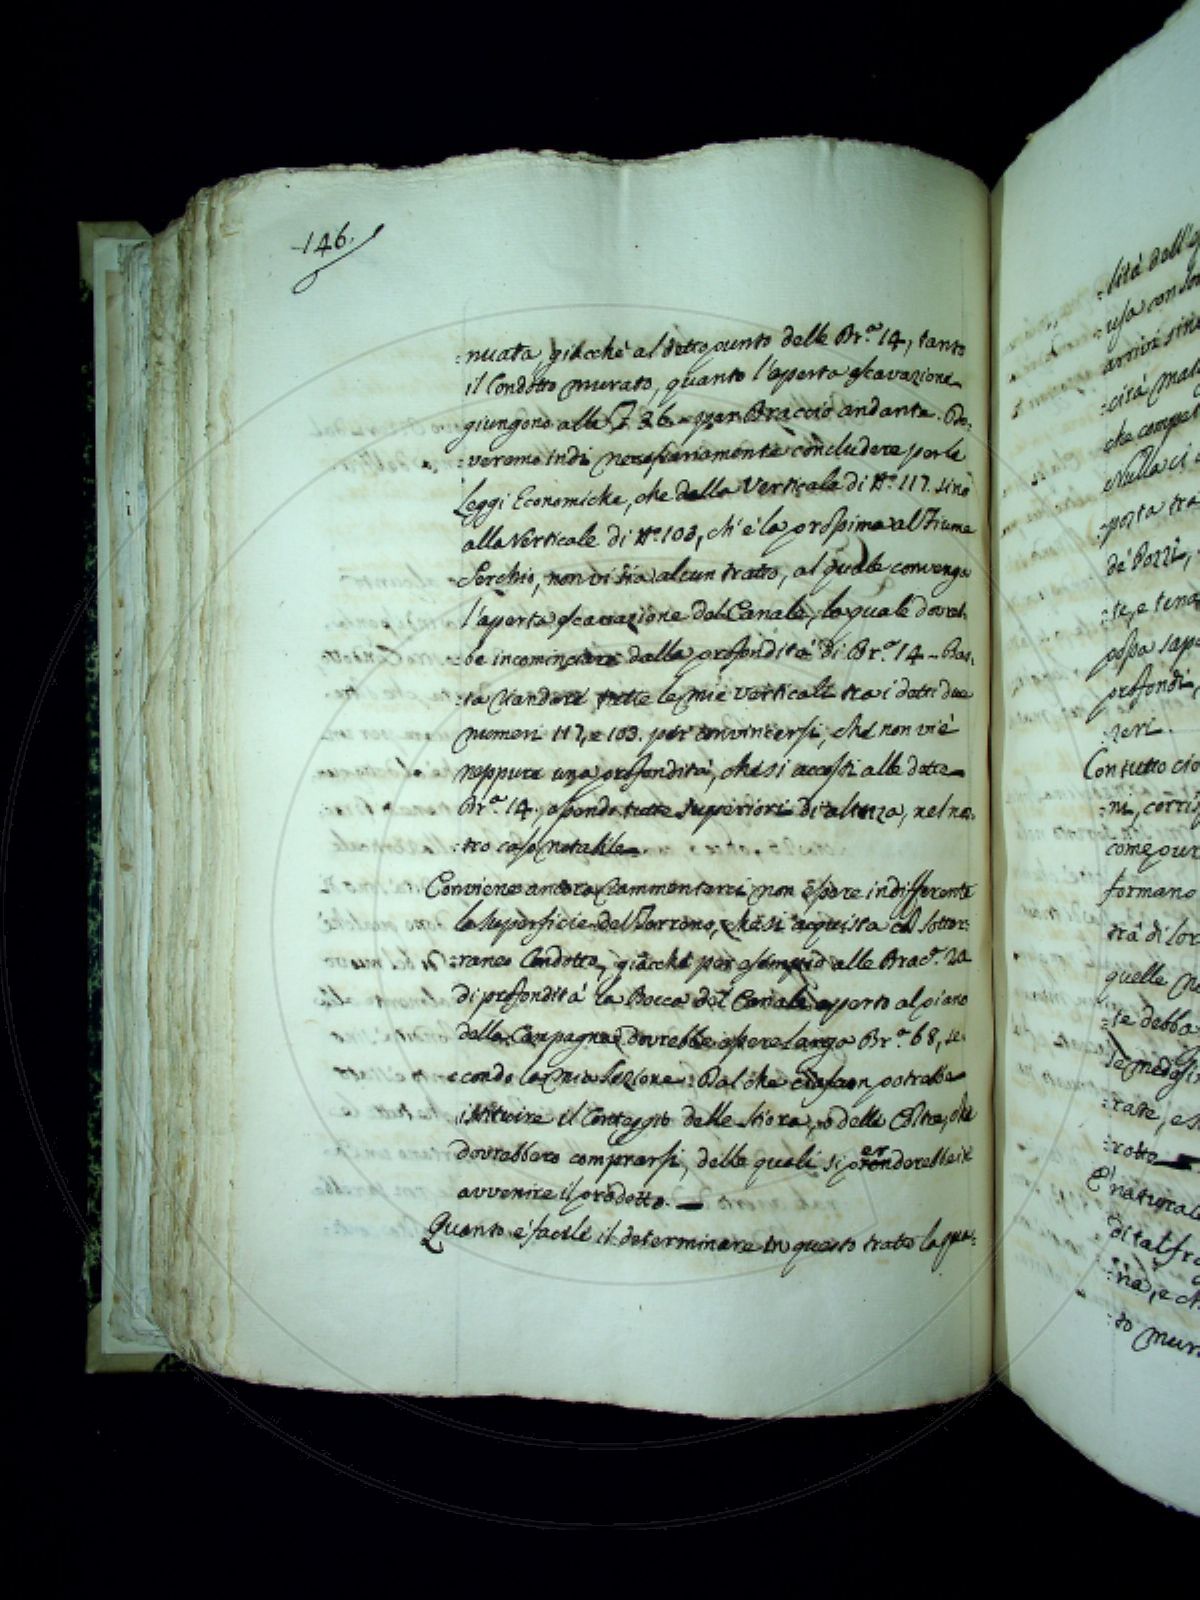 146.
:nuata, giacchè al detto punto delle Br.ª 14, tanto
il Condotto murato, quanto l'aperta escavazione
giungono alle 36 per Braccio andante. Do:
:veremo indi necessariamente concludere per le
Leggi Economiche, che dalla Verticale di N.º 117. sino
alla Verticale di N.º 103, ch'è la prossima al Fiume
Serchio, non vi sia alcun tratto, al quale convenga
l'aperta escavazione del Canale, la quale dovreb:
:be incominciare dalla profondità di Br.ª 14 - Bas:
:ta vandere tutte le mie verticali tra i detti due
numeri 117, e 103. per convincersi, che non vi è
neppure una profondità, che si accosti alle dette
Br.ª 14., essendo tutte superiori di altezza, nel nos:
:tro caso notabile.
Conviene ancora rammentarci non essere indifferente
la superficie del Terreno, che si acquista col sotter:
:raneo Condotto, giacchè per esempio alle Brac.ª 20
di profondità la Bocca del Canale aperto al piano
della Campagna dovrebbe essere larga Br.ª 68, se:
condo la mia Sezione: Dal che ciascun potrebbe
istituire il Conteggio delle stiora, o delle Coltre, che
dovrebbero comprarsi, delle quali si perderebbe in
avvenire il prodotto.
Quanto è facile il determinare in questo tratto la qua:
:lità dell'
:usa con
arrivi sino
:cità
che
Nulla ci
:posta tra
de' Pozzi,
:te, e
possa
profondi,
:neri.
Con tutto ciò
:ni,
come pur
formano
trà di lor
quelle
:te debba
le medesi
:rate, e
:rotto
È naturale
di tal
:na, e ch
:to mur